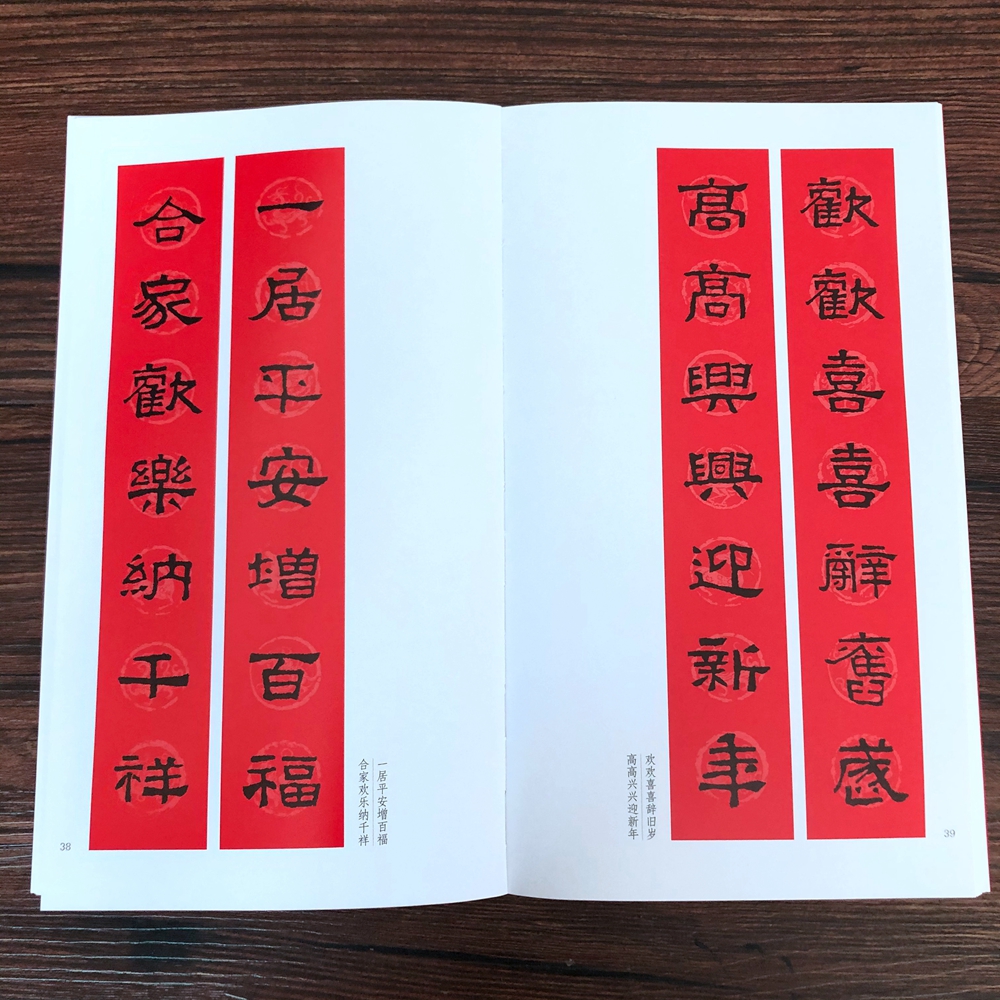 一居平安增百福
合家歡樂納千祥
一居平安增百福
合家欢乐纳千祥
38
歡歡喜喜辭舊歲
高高興興迎新年
欢欢喜喜辞旧岁
高高兴兴迎新年
39